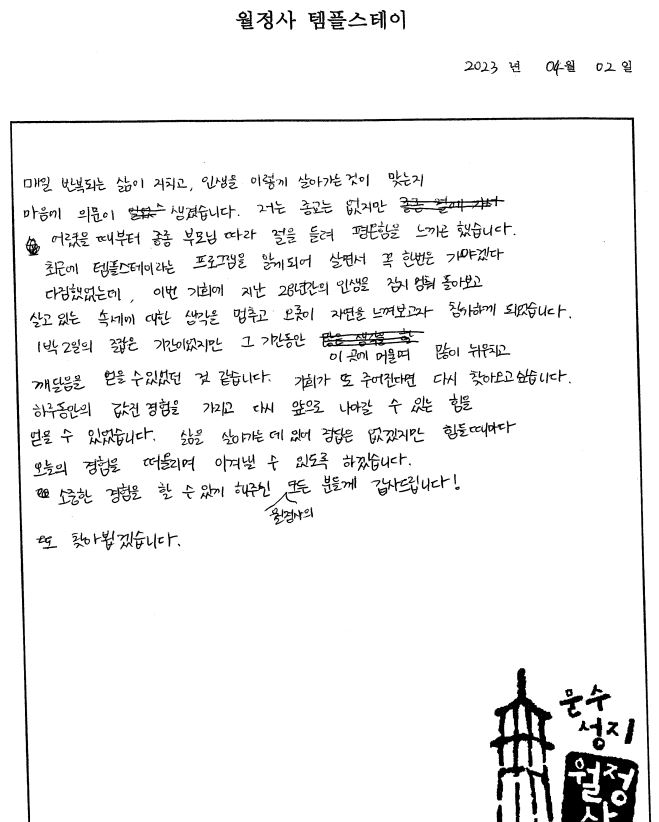 월정사 템플스테이
2023 년 04월 02 일
매일 반복되는 삶이 지치고, 인생을 이렇게 살아가는것이 맞는지
마음에 의문이 생겼습니다. 저는 종교는 없지만
어렸을 때부터 종종 부모님 따라 절을 들려 평온함을 느끼곤 했습니다.
최근에 템플스테이라는 프로그램을 알게되어 살면서 꼭 한번은 가야겠다
다짐했었는데, 이번 기회에 지난 28년간의 인생을 잠시 멈춰 돌아보고
살고 있는 속세에 대한 생각을 멈추고 오롯이 자연을 느껴보고자 참가하게 되었습니다.
1박 2일의 짧은 기간이었지만 그 기간동안
이 곳에 머물며 많이 뉘우치고
깨달음을 얻을 수 있었던 것 같습니다. 기회가 또 주어진다면 다시 찾아오고 싶습니다.
하루동안의 값진 경험을 가지고 다시 앞으로 나아갈 수 있는 힘을
얻을 수 있었습니다. 삶을 살아가는 데 있어 정답은 없겠지만 힘들때마다
오늘의 경험을 떠올리며 이겨낼 수 있도록 하겠습니다.
소중한 경험을 할 수 있게 해주신 모든 분들께 감사드립니다!
월정사의
또 찾아뵙겠습니다.
문수
성지
월정
사